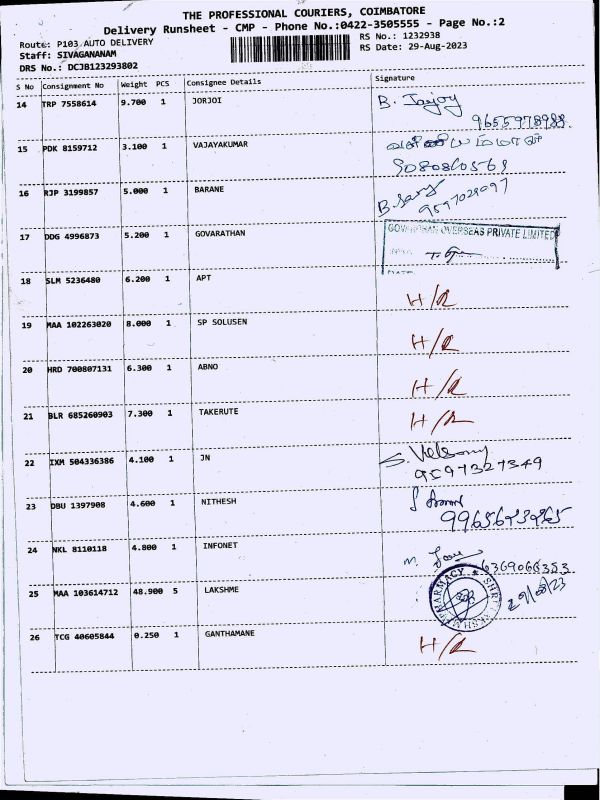 THE PROFESSIONAL COURIERS, COIMBATORE
Delivery Runsheet - CMP - Phone No.:0422-3505555 - Page No.:2
Route: P103 AUTO DELIVERY RS No.: 1232938
Staff: SIVAGANANAM RS Date: 29-Aug-2023
DRS No.: DCJB123293802
S No Consignment No Weight PCS Consignee Details Signature
14 TRP 7558614 9.700 1 JORJOI B.
9655978988.
15 PDK 8159712 3.100 1 VAJAYAKUMAR
16 RJP 3199857 5.000 1 BARANE B.
17 DDG 4996873 5.200 1 GOVARATHAN OVERSEAS PRIVATE LIMITED
18 SLM 5236480 6.200 1 APT H/R
19 MAA 102263020 8.000 1 SP SOLUSEN H/R
20 HRD 700807131 6.300 1 ABNO H/R
21 BLR 685260903 7.300 1 TAKERUTE H/R
22 IXM 504336386 4.100 1 JN S.
9597327349
23 DBU 1397908 4.600 1 NITHESH
24 NKL 8110118 4.800 1 INFONET M.
6369066353
25 MAA 103614712 48.900 5 LAKSHME PHARMACY 29/08/23
26 TCG 40605844 0.250 1 GANTHAMANE H/R